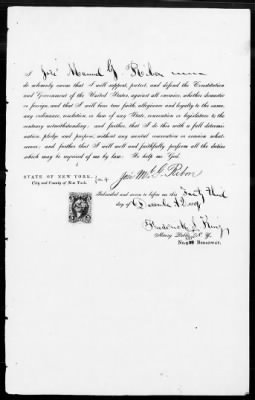 I José Manuel G. Ribon
do solemnly swear that I will support, protect, and defend the Constitution
and Government of the United States, against all enemies, whether domestic
or foreign, and that I will bear true faith, allegiance and loyalty to the same,
any ordinance, resolution, or law of any State, convention or legislation to the
contrary notwithstanding; and further, that I do this with a full determi-
nation pledge and purpose, without any mental reservation or evasion what-
soever; and further that I will well and faithfully perform all the duties
which may be required of me by law: So help me God.
STATE OF NEW YORK,
City and County of New York.
José Ml. G. Ribon
Subscribed and sworn to before me this
day of
Frederick S. King
Notary Public, N. Y.
Broadway.